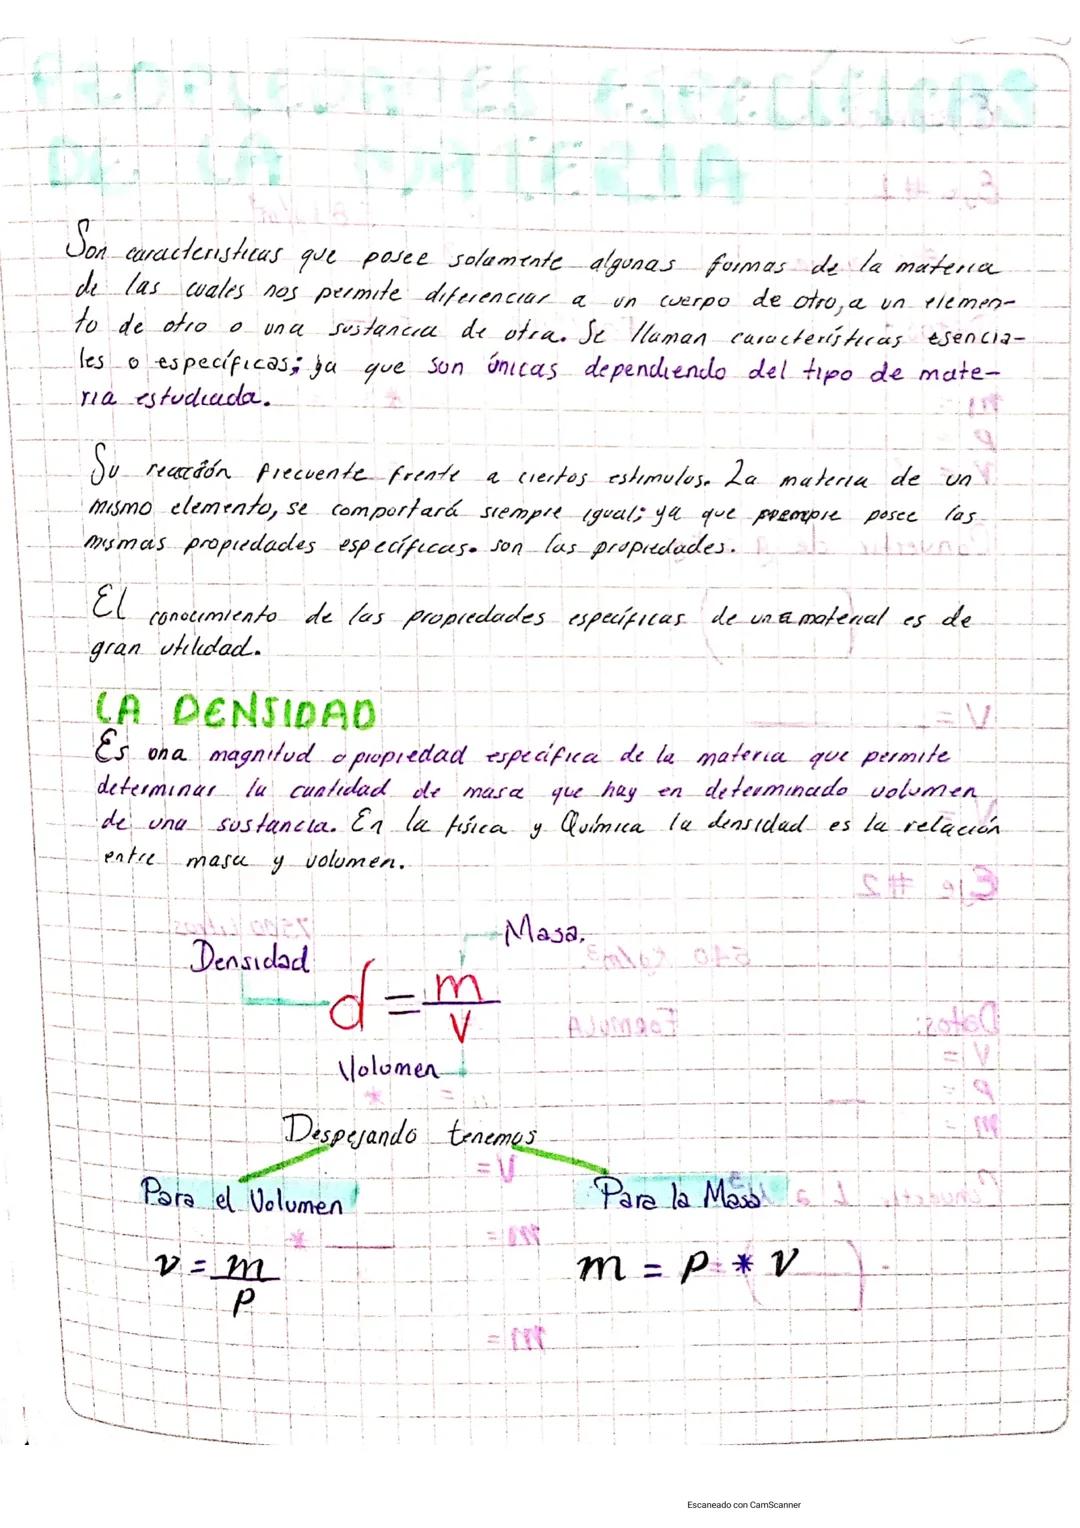 DE LA MATERIA
Son caracteristicas que posee solamente algunas formas de la materia
de las cuales nos permite diferenciar a un cuerpo de otro, a un elemen-
to de otro o una sustancia de otra. Se llaman características esencia-
les o específicas; ya que son únicas dependiendo del tipo de mate-
ria estudiada.
Su reacción frecuente frente a ciertos estimulos. La materia de un
mismo elemento, se comportará siempre igual; ya que posee las
mismas propiedades específicas. son las propiedades.
El conocimiento de las propiedades específicas de una material es de
gran utilidad.
LA DENSIDAD
Es una magnitud o propiedad específica de la materia que permite
determinar la cantidad de masa que hay en determinado volumen
de una sustancia. En la física y Química la densidad es la relación
entre masa y volumen.
Masa.
Densidad
d = m
v
Volumen
Despejando tenemos
Para el Volumen Para la Masa
v = m
p
m = p * v
Escaneado con CamScanner